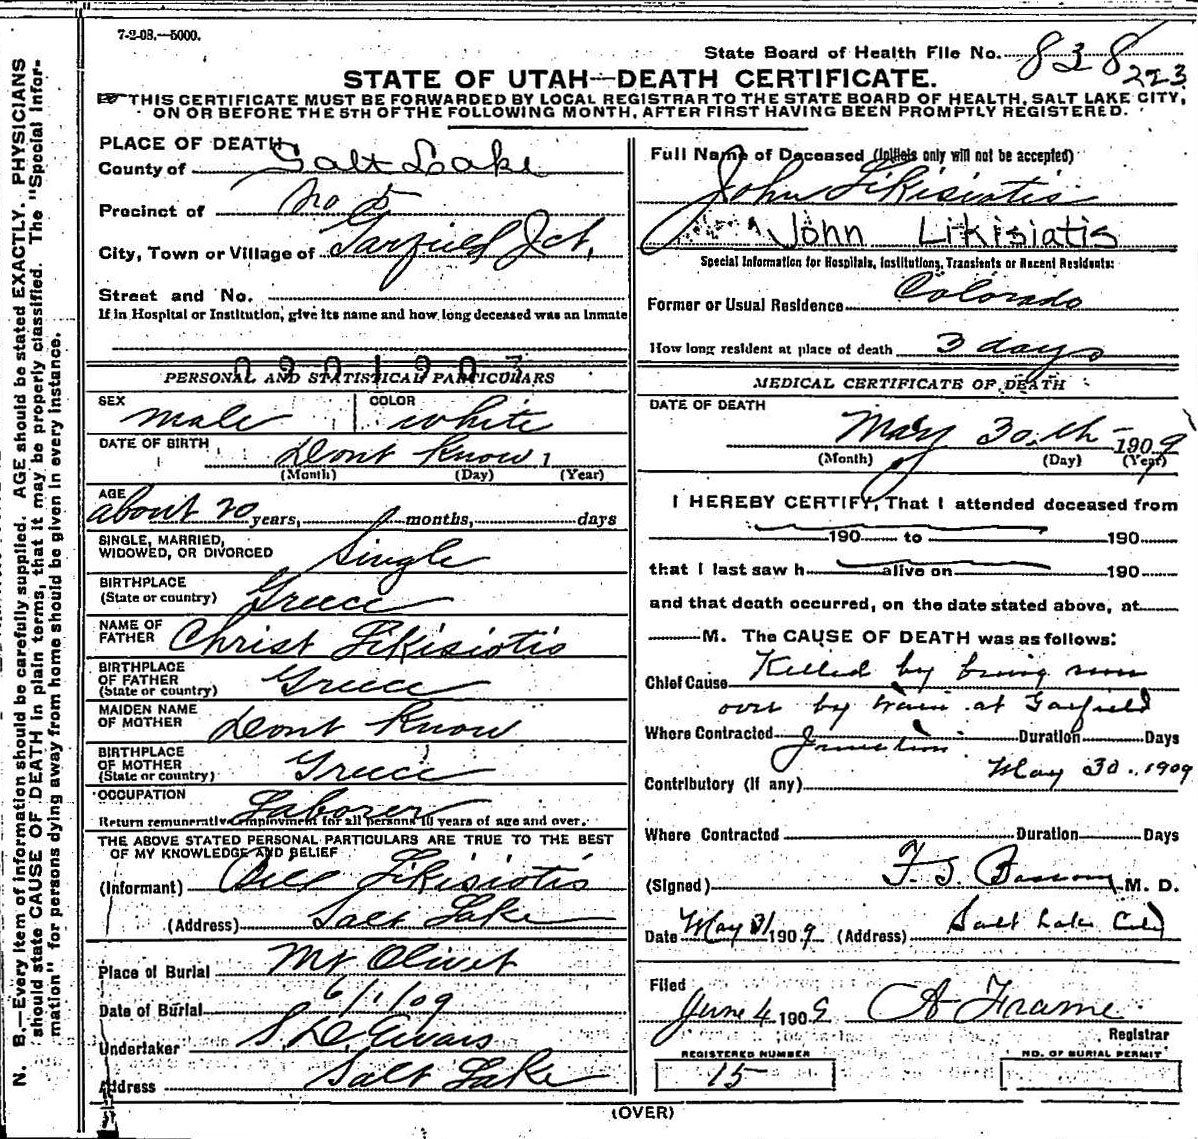 7-2-08.—5000.
State Board of Health File No. 838
223
STATE OF UTAH—DEATH CERTIFICATE.
THIS CERTIFICATE MUST BE FORWARDED BY LOCAL REGISTRAR TO THE STATE BOARD OF HEALTH, SALT LAKE CITY,
ON OR BEFORE THE 5TH OF THE FOLLOWING MONTH, AFTER FIRST HAVING BEEN PROMPTLY REGISTERED.
PLACE OF DEATH
County of Salt Lake
Precinct of No 5
City, Town or Village of Garfield Jct.
Street and No.
If in Hospital or Institution, give its name and how long deceased was an inmate
0901903
PERSONAL AND STATISTICAL PARTICULARS
SEX male COLOR white
DATE OF BIRTH Dont Know 1
(Month) (Day) (Year)
AGE about 20 years, months, days
SINGLE, MARRIED,
WIDOWED, OR DIVORCED Single
BIRTHPLACE
(State or country) Greece
NAME OF
FATHER Christ Likisiotis
BIRTHPLACE
OF FATHER
(State or country) Greece
MAIDEN NAME
OF MOTHER Dont Know
BIRTHPLACE
OF MOTHER
(State or country) Greece
OCCUPATION Laborer
Return remunerative employment for all persons 10 years of age and over.
THE ABOVE STATED PERSONAL PARTICULARS ARE TRUE TO THE BEST
OF MY KNOWLEDGE AND BELIEF
(Informant) Bill Likisiotis
(Address) Salt Lake
Place of Burial Mt Olivet
Date of Burial 6/1/09
Undertaker S. D. Evans
Address Salt Lake
Full Name of Deceased (Initials only will not be accepted)
John Likisiotis
John Likisiatis
Special Information for Hospitals, Institutions, Transients or Recent Residents:
Former or Usual Residence Colorado
How long resident at place of death 3 days
MEDICAL CERTIFICATE OF DEATH
DATE OF DEATH
May 30.th 1909
(Month) (Day) (Year)
I HEREBY CERTIFY, That I attended deceased from
190 to 190
that I last saw h alive on 190
and that death occurred, on the date stated above, at
M. The CAUSE OF DEATH was as follows:
Chief Cause Killed by being run
over by train at Garfield
Where Contracted Junction Duration Days
May 30. 1909
Contributory (if any)
Where Contracted Duration Days
(Signed) F. S. M. D.
Date May 31 1909 (Address) Salt Lake City
Filed
June 4 1909 A Frame
Registrar
REGISTERED NUMBER
15
NO. OF BURIAL PERMIT
(OVER)
N. B.—Every item of information should be carefully supplied. AGE should be stated EXACTLY. PHYSICIANS
should state CAUSE OF DEATH in plain terms, that it may be properly classified. The "Special Infor-
mation" for persons dying away from home should be given in every instance.